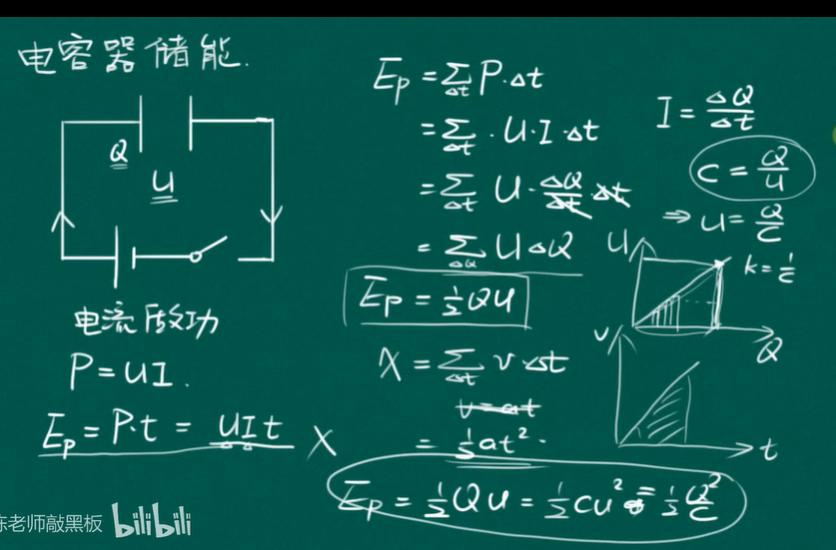 电容器储能.
Q
U
电流做功
P=UI.
Ep = P·t = UIt ×
Ep = ∑Δt P·Δt
= ∑Δt · U·I·Δt
= ∑Δt U·ΔQ/Δt Δt
= ∑ΔQ UΔQ
Ep = 1/2 QU
X = ∑Δt v·Δt
v=at
= 1/2 at².
Ep = 1/2 QU = 1/2 CU² = 1/2 Q²/C
I = ΔQ/Δt
C = Q/U
⇒ U = Q/C
U
k = 1/C
Q
v
t
老师敲黑板 bilibili